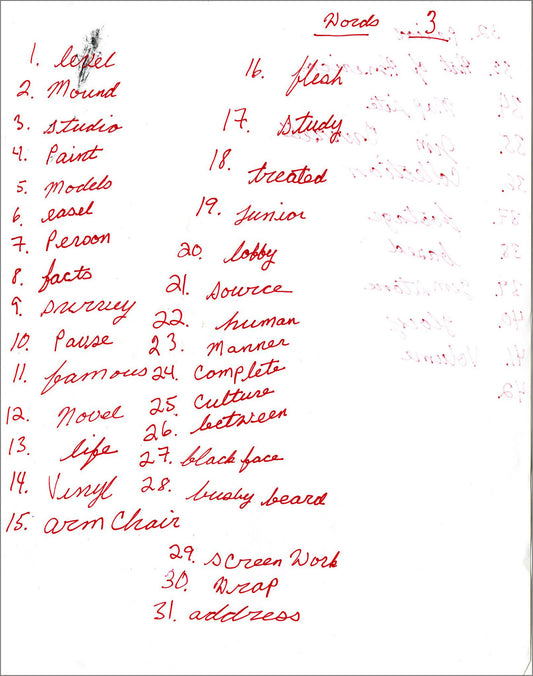 Words 3
1. level
2. Mound
3. studio
4. Paint
5. Models
6. easel
7. Person
8. facts
9. survey
10. Pause
11. famous
12. Novel
13. life
14. Vinyl
15. arm Chair
16. flesh
17. study
18. treated
19. Junior
20. lobby
21. source
22. human
23. Manner
24. Complete
25. Culture
26. between
27. black face
28. bushy beard
29. screen Work
30. Drap
31. address